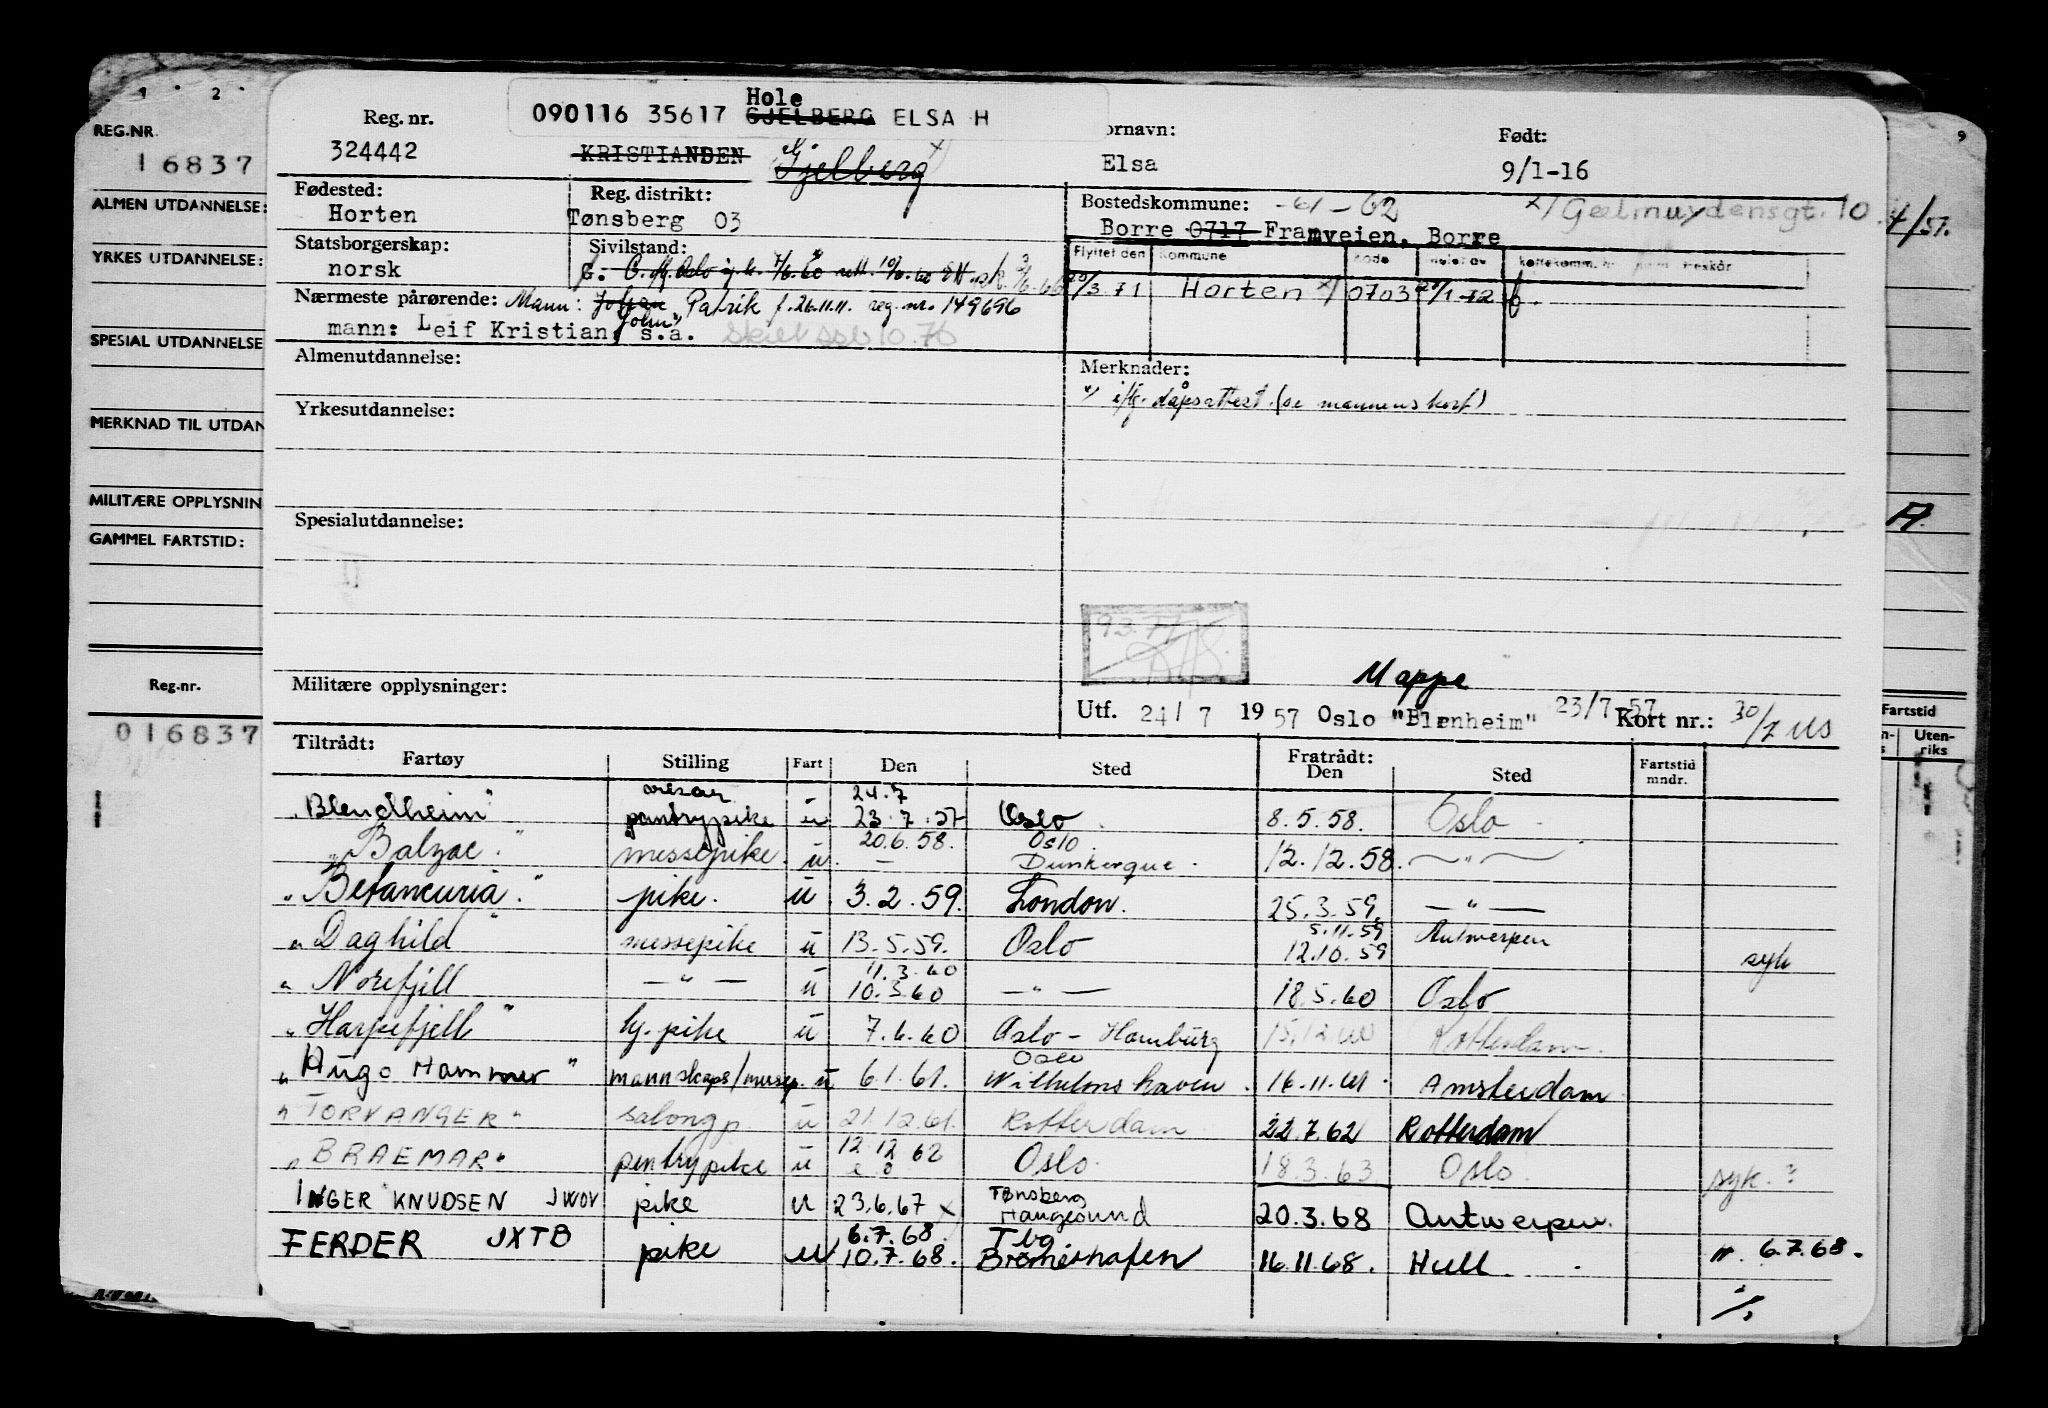 Hole
090116 35617 GJELBERG ELSA H
Reg. nr.
324442
KRISTIANDEN Gjelberg
ornavn:
Elsa
Født:
9/1-16
Fødested:
Horten
Reg. distrikt:
Tønsberg 03
Bostedskommune: -61-62
x/ Gælmuydensgt. 10
Borre 0717 Framveien, Borre
Statsborgerskap:
norsk
Sivilstand:
Flyttet den Kommune Kode
20/3.71 Horten x/ 0703
Nærmeste pårørende: Mann: Johan Patrik f. 26.11.11. reg.nr. 149696
"John"
mann: Leif Kristian, s.a.
Almenutdannelse:
Merknader:
iflg. dåpsattest (se mannens kort)
Yrkesutdannelse:
Spesialutdannelse:
Militære opplysninger:
Mappe
Utf. 24/7 1957 Oslo "Blenheim" 23/7-57 Kort nr.: 30/7 us
Tiltrådt:
Fartøy Stilling Fart Den Sted Fratrådt: Den Sted Fartstid mndr.
24.7
"Blendheim" pantrypike u 23.7.57 Oslo 8.5.58. Oslo
20.6.58. Oslo
"Balzac" messepike. u. — Dunkerque. 12.12.58. — " —
"Betancuria." pike. u 3.2.59. London. 25.3.59. — " —
5.11.59 Antwerpen
"Daghild" messepike u 13.5.59. Oslo 12.10.59 syk
11.3.60
"Norefjell — " — u 10.3.60 — " — 18.5.60 Oslo
"Harpefjell" lg. pike u 7.6.60 Oslo - Hamburg 15.12.60 Rotterdam.
Oslo
"Hugo Hammer" mannskaps/messep. u 6.1.61. Wilhelmshaven. 16.11.61. Amsterdam
"TORVANGER" salongp. u 21.12.61. Rotterdam 22.7.62 Rotterdam
12.12.62
"BRAEMAR" pentrypike u Oslo. 18.3.63 Oslo. syk. ?
Tønsberg
INGER KNUDSEN JWOV pike u 23.6.67 x Haugesund 20.3.68 Antwerpen.
6.7.68. Tbg
FERDER JXTB pike u 10.7.68. Bremerhafen 16.11.68. Hull. 6.7.68.
REG.NR.
16837
ALMEN UTDANNELSE:
YRKES UTDANNELSE:
SPESIAL UTDANNELSE
MERKNAD TIL UTDAN
MILITÆRE OPPLYSNIN
GAMMEL FARTSTID:
Reg.nr.
016837
Fartstid
Uten-
riks